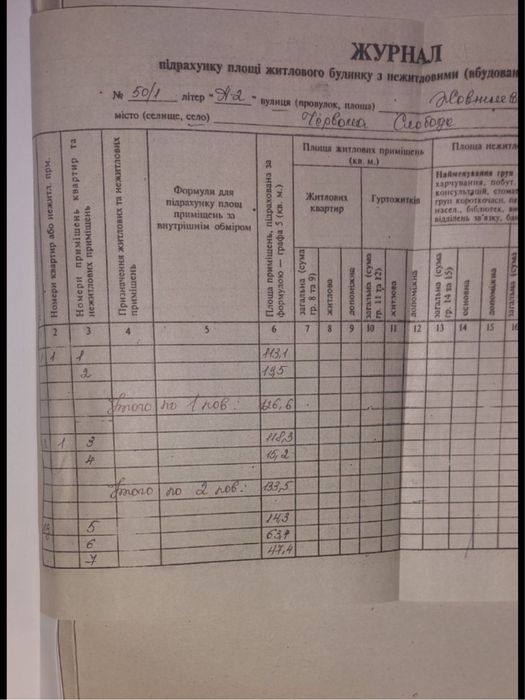 ЖУРНАЛ
підрахунку площі житлового будинку з нежитловими (вбудован
№ 50/1 літер "А-2" вулиця (провулок, площа) Жовтнева
місто (селище, село) Червона Слобода
Номери квартир або нежитл. прм.
Номери приміщень квартир та нежитлових приміщень
Призначення житлових та нежитлових приміщень
Формули для
підрахунку площ
приміщень за
внутрішнім обміром
Площа приміщень, підрахована за
формулою — графа 5 (кв. м.)
Площа житлових приміщень
(кв. м.)
Житлових
квартир
Гуртожитків
загальна (сума
гр. 8 та 9)
житлова
допоміжна
загальна (сума
гр. 11 та 12)
житлова
допоміжна
Площа нежитл
Найменування груп
харчування, побут.
консультацій, стомат
груп короткочасн. пе
насел., бібліотек,
відділень зв'язку, бан
загальна (сума
гр. 14 та 15)
основна
допоміжна
загальна (сума
2 3 4 5 6 7 8 9 10 11 12 13 14 15 16
1 1 113,1
2 13,5
Итого по 1 пов: 126,6
1 3 118,3
4 15,2
Итого по 2 пов: 133,5
5 14,3
6
7 47,4